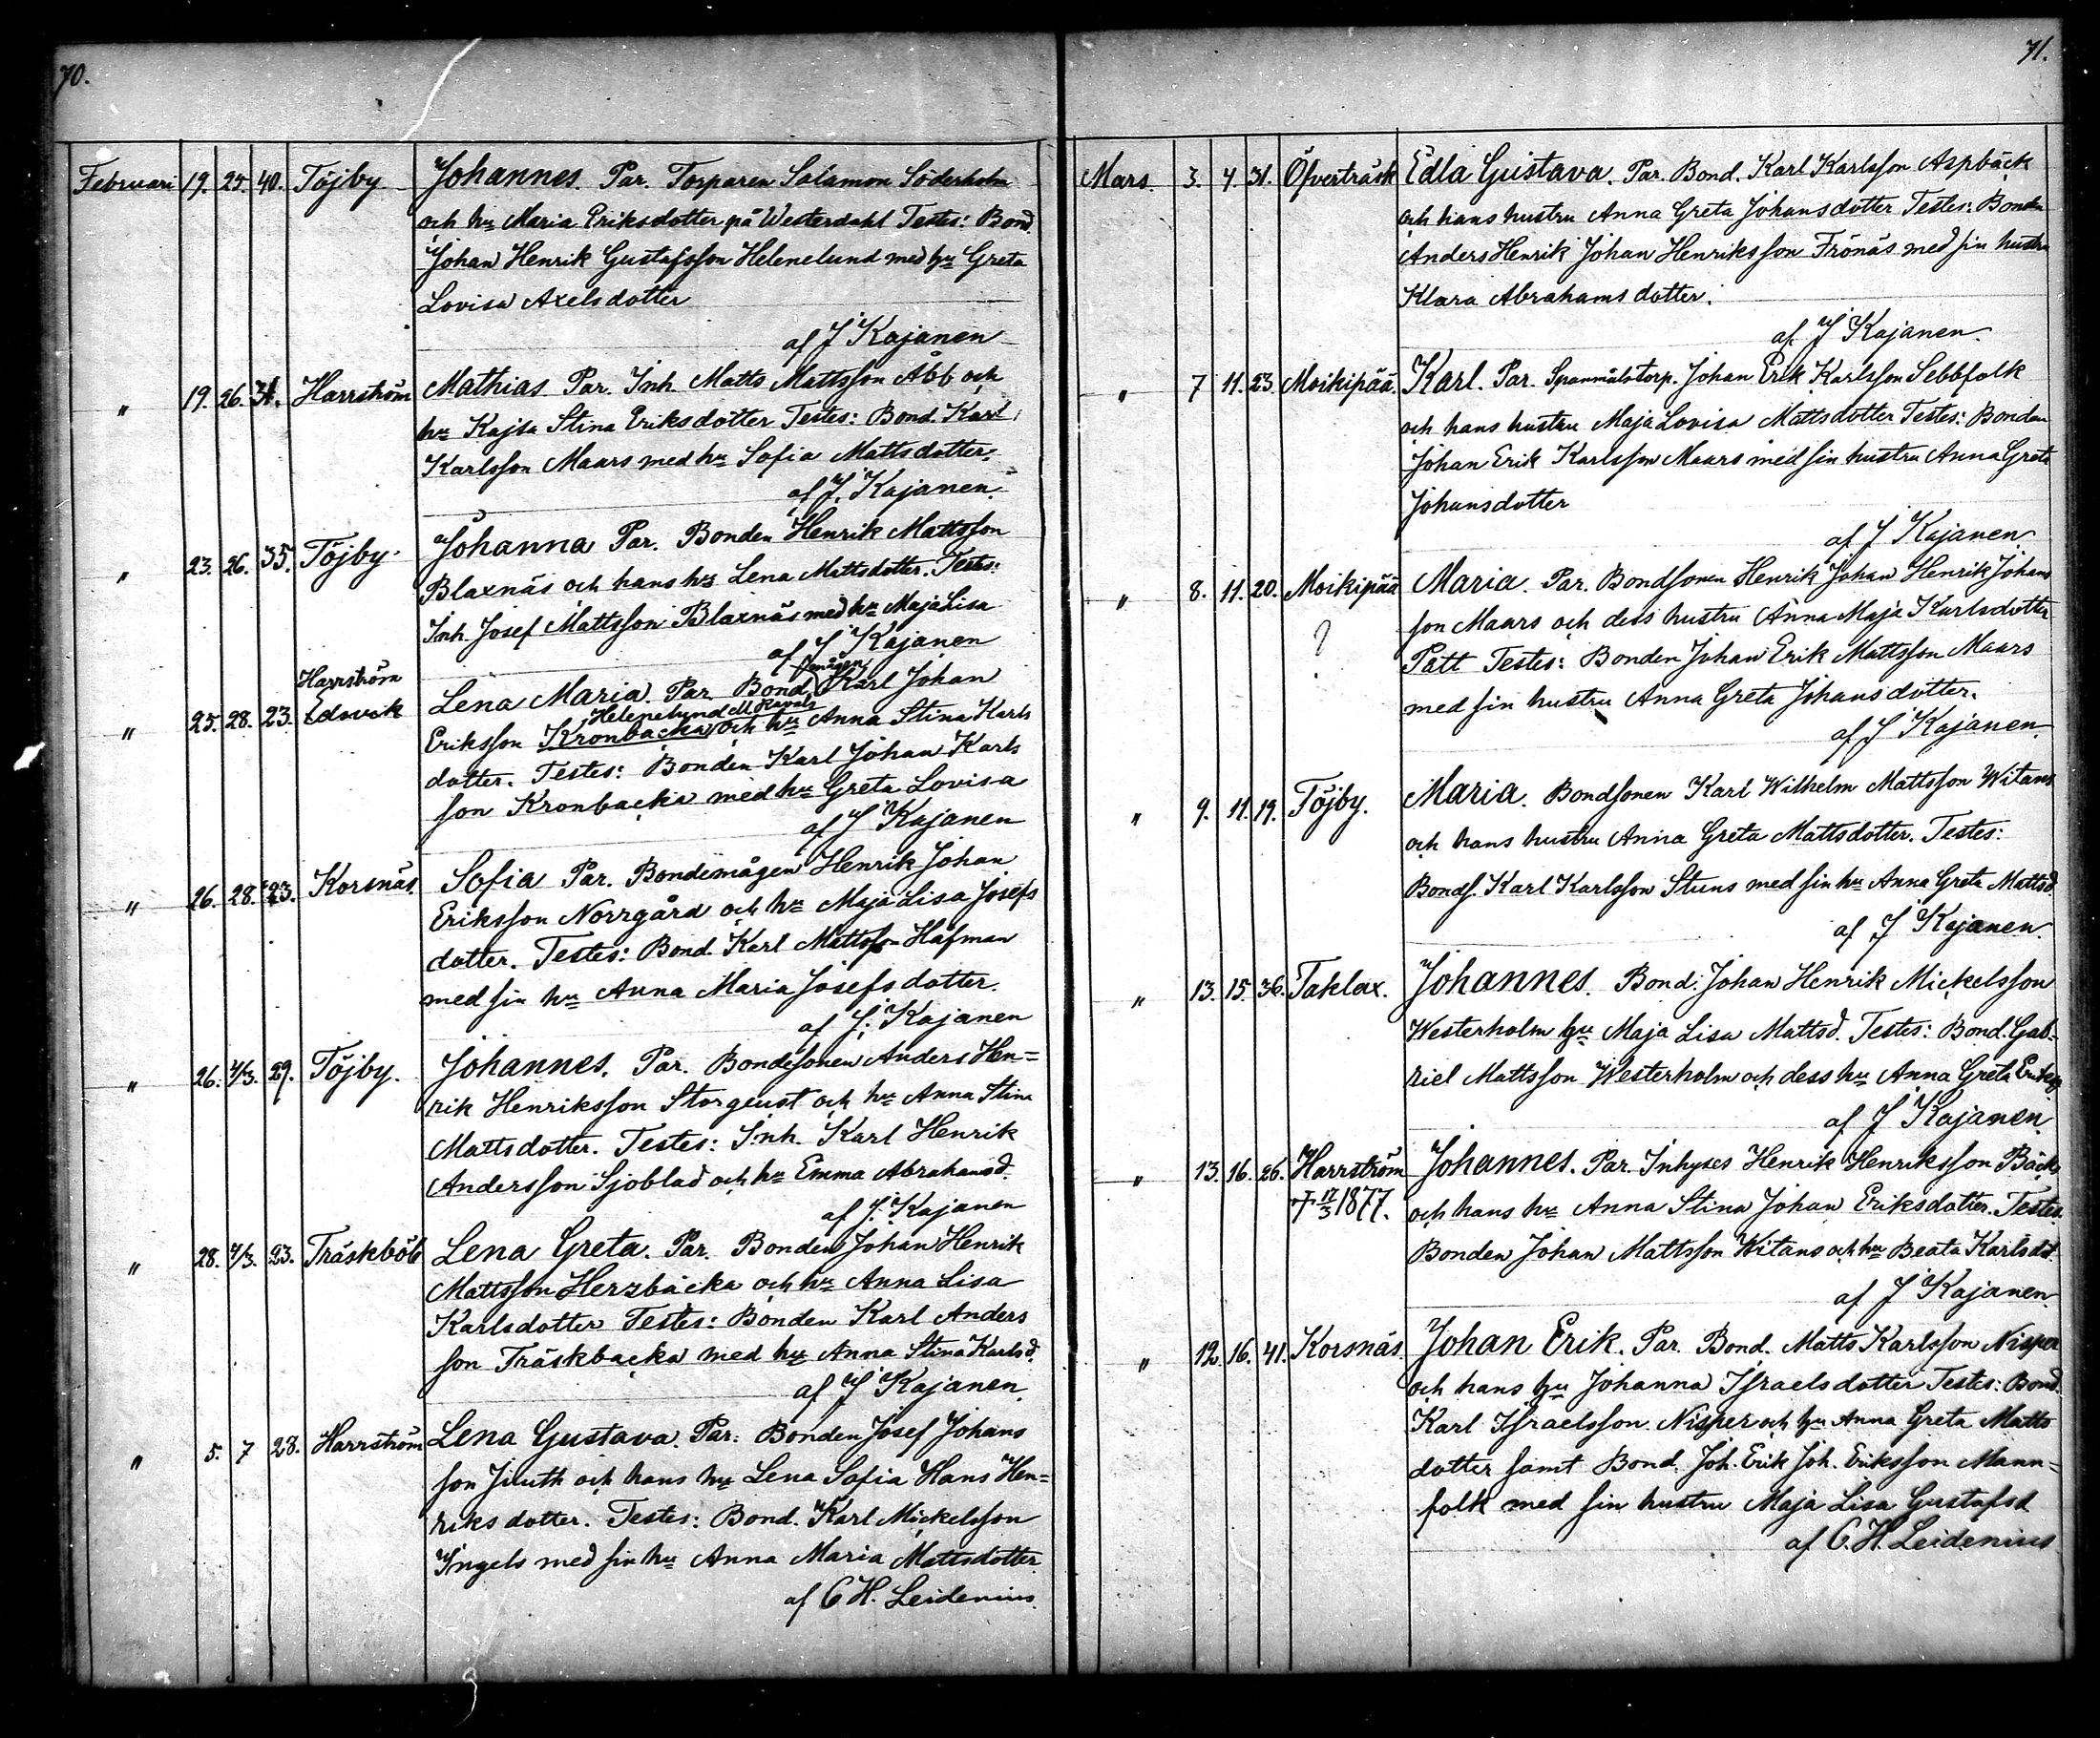 70.
Februari 19. 25. 40. Töjby. Johannes. Par. Torparen Salamon Söderholm
och hu Maria Eriksdotter på Westerdahl Testes: Bond.
Johan Henrik Gustafsson Helenelund med hu Greta
Lovisa Axelsdotter
af J Kajanen
" 19. 26. 31. Harrström Mathias. Par. Inh. Matts Mattsson Åbb och
hu Kajsa Stina Eriksdotter Testes: Bond. Karl
Karlsson Maars med hu Sofia Mattsdotter.
af J. Kajanen.
" 23. 26. 35. Töjby. Johanna Par. Bonden Henrik Mattsson
Blaxnäs och hans hu Lena Mattsdotter. Testes:
Inh. Josef Mattsson Blaxnäs med hu Maja Lisa
af J Kajanen
Harrström
" 25. 28. 23. Edsvik Lena Maria. Par Bond. mågen Karl Johan
Helenelund
Eriksson Kronbacka och hu Anna Stina Karls
dotter. Testes: Bonden Karl Johan Karls
son Kronbacka med hu Greta Lovisa
af J Kajanen
" 26. 28. 23. Korsnäs. Sofia Par. Bondemågen Henrik Johan
Eriksson Norrgård och hu Maja Lisa Josefs
dotter. Testes: Bond. Karl Mattsson Hafman
med sin hu Anna Maria Josefsdotter.
af J. Kajanen
" 26. 4/3. 29. Töjby. Johannes. Par. Bondesonen Anders Hen=
rik Henriksson Storgeust och hu Anna Stina
Mattsdotter. Testes: Inh. Karl Henrik
Andersson Sjöblad och hu Emma Abrahamsd.
af J. Kajanen
" 28. 4/3. 23. Träskböle Lena Greta. Par. Bonden Johan Henrik
Mattsson Herzbacka och hu Anna Lisa
Karlsdotter Testes: Bonden Karl Anders
son Träskbacka med hu Anna Stina Karlsd.
af J Kajanen.
" 5. 7 28. Harrström Lena Gustava. Par. Bonden Josef Johans
son Juuth och hans hu Lena Sofia Hans Hen=
riksdotter. Testes: Bond. Karl Mickelsson
Ingels med sin hu Anna Maria Mattsdotter
af C H. Leidenius.
71.
Mars. 3. 4. 31. Öfverträsk Edla Gustava. Par. Bond. Karl Karlsson Aspbäck
och hans hustru Anna Greta Johansdotter Testes: Bonden
Anders Henrik Johan Henriksson Frönäs med sin hustru
Klara Abrahamsdotter.
af J Kajanen.
" 7 11. 23. Moikipää. Karl. Par. Spanmålstorp. Johan Erik Karlsson Sebbfolk
och hans hustru Maja Lovisa Mattsdotter Testes: Bonden
Johan Erik Karlsson Maars med sin hustru Anna Greta
Johansdotter
af J Kajanen
" 8. 11. 20. Moikipää Maria. Par. Bondsonen Henrik Johan Henrik Johans
? son Maars och dess hustru Anna Maja Karlsdotter
Pått Testes: Bonden Johan Erik Mattsson Maars
med sin hustru Anna Greta Johansdotter.
af J Kajanen.
" 9. 11. 19. Töjby. Maria. Bondsonen Karl Wilhelm Mattsson Witans
och hans hustru Anna Greta Mattsdotter. Testes:
Bonds. Karl Karlsson Stuns med sin hu Anna Greta Mattsd.
af J Kajanen.
" 13. 15. 36. Taklax. Johannes. Bond. Johan Henrik Mickelsson
Westerholm hu Maja Lisa Mattsd. Testes: Bond. Gab=
riel Mattsson Westerholm och dess hu Anna Greta
af J Kajanen.
" 13. 16. 26. Harrström Johannes. Par. Inhyses Henrik Henriksson Bäcks
† 17/3 1877. och hans hu Anna Stina Johan Eriksdotter. Testes.
Bonden Johan Mattsson Witans och hu Beata Karlsdot.
af J Kajanen.
" 12. 16. 41. Korsnäs. Johan Erik. Par. Bond. Matts Karlsson Nisper
och hans hu Johanna Israelsdotter Testes: Bond.
Karl Israelsson Nisper och hu Anna Greta Matts
dotter samt Bond. Joh. Erik Joh. Eriksson Mann=
folk med sin hustru Maja Lisa Gustafsd
af C. H. Leidenius